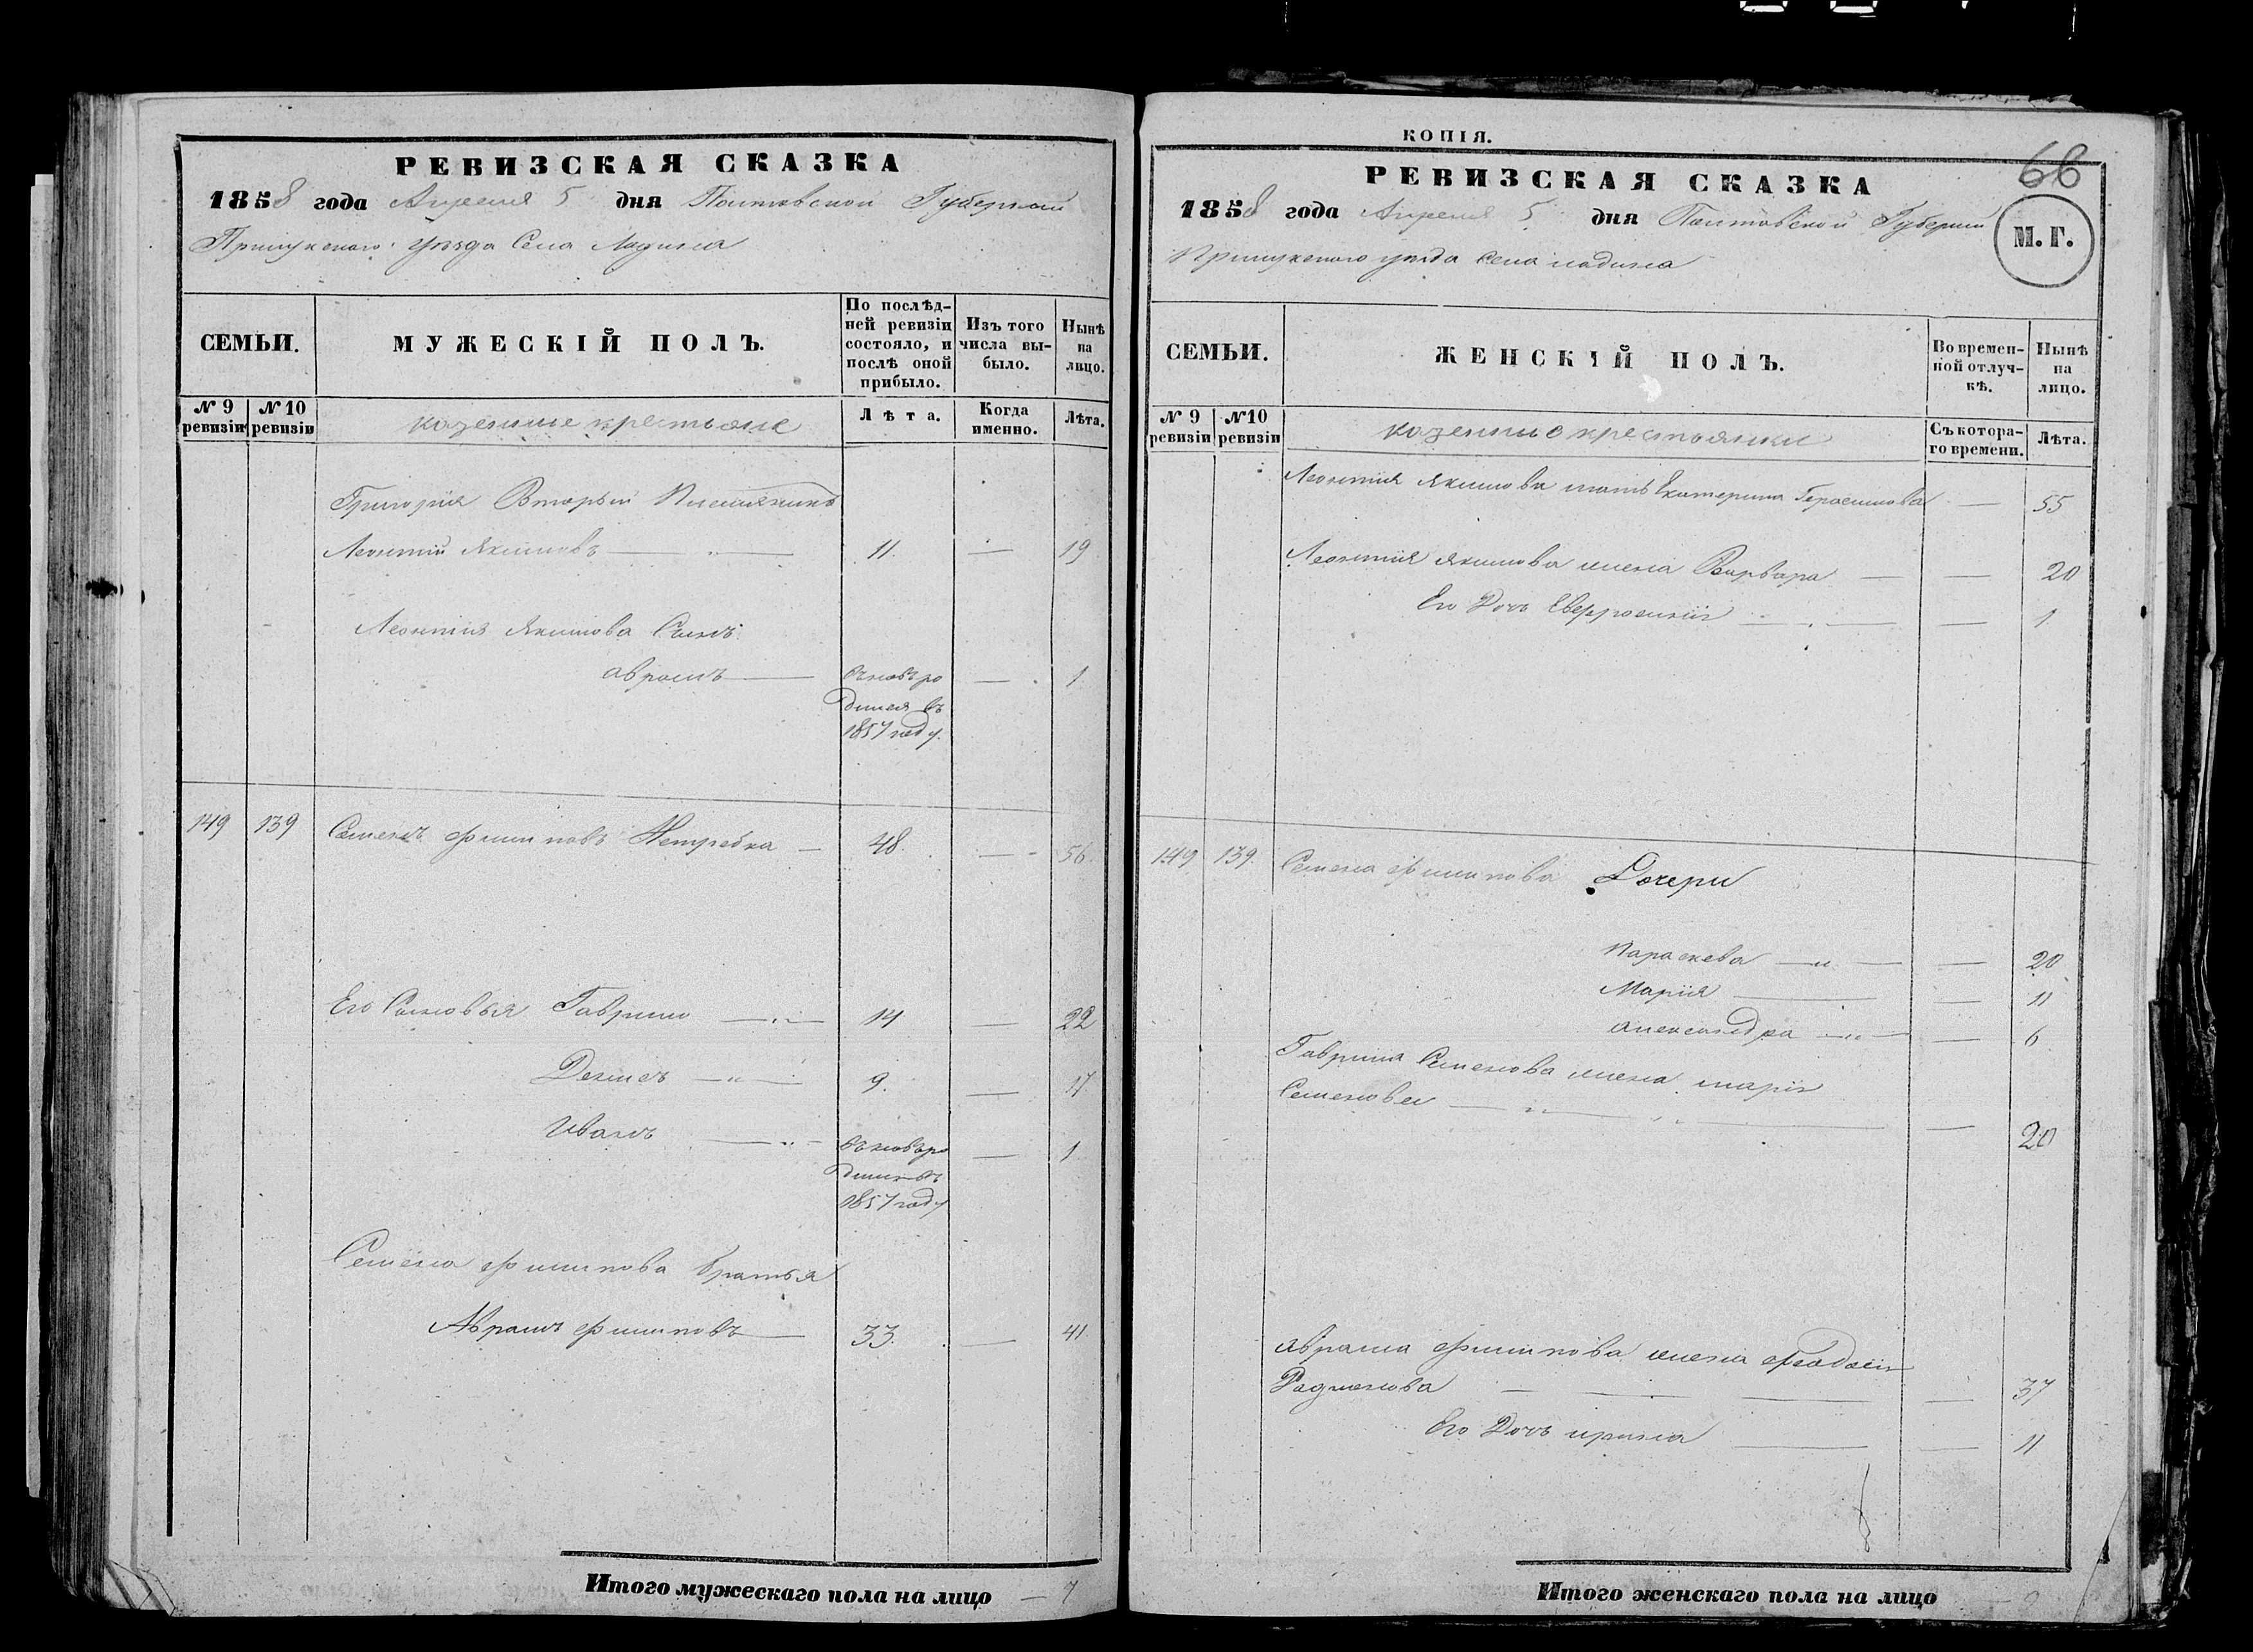 РЕВИЗСКАЯ СКАЗКА
1858 года Апреля 5 дня Полтавской Губернии
Прилукского уезда Села Ладина
СЕМЬИ.
МУЖЕСКІЙ ПОЛЪ.
По послѣд-
ней ревизіи
состояло, и
послѣ оной
прибыло.
Изъ того
числа вы-
было.
Нынѣ
на
лицо.
№ 9
ревизіи
№ 10
ревизіи
казенные крестьяне
Лѣта.
Когда
именно.
Лѣта.
Григорія Вторый Племянникъ
Леонтій Якимовъ — 11. — 19
Леонтія Якимова Сынъ
Аврамъ — вновь ро — 1
дился въ
1857 году.
149 139 Семенъ Филиповъ Нетребка — 48. — 56.
Его Сыновья Гаврило — 14 — 22
Денисъ — 9. — 17
Иванъ — вновь ро — 1
дился въ
1857 году
Семена Филипова братья
Аврамъ Филиповъ — 33. — 41.
Итого мужескаго пола на лицо — 7
КОПІЯ.
66
РЕВИЗСКАЯ СКАЗКА
1858 года Апреля 5 дня Полтавской Губернии
М. Г.
Прилукского уезда села ладина
СЕМЬИ.
ЖЕНСКІЙ ПОЛЪ.
Во времен-
ной отлуч-
кѣ.
Нынѣ
на
лицо.
№ 9
ревизіи
№ 10
ревизіи
казенные крестьянки
Съ котора-
го времени.
Лѣта.
Леонтія Якимова мать Екатерина Герасимова — 55
Леонтія Якимова жена Варвара — — 20
Его Дочь Евфросинія — — 1
149 139. Семена Филипова Дочери
Параскева — — 20
Марія — — 11
Александра — — 6
Гаврила Семенова жена марія
Семенова — — 20
Аврама Филипова жена Феодосія
Родионова — — 37
Его Дочь ирина — — 11
Итого женскаго пола на лицо — 9